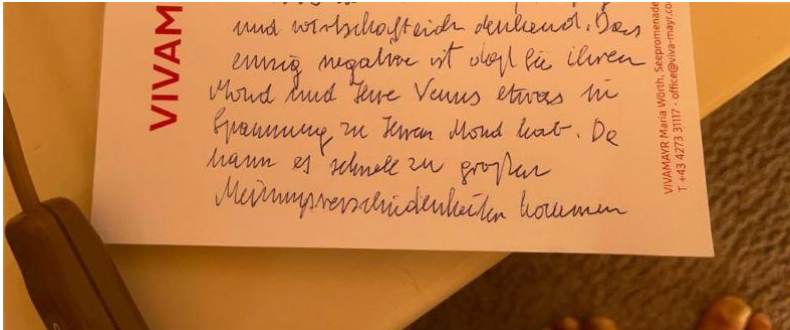 und wirtschaftlich denkend. Das
einzig negative ist daß Sie ihren
Mond und Ihre Venus etwas in
Spannung zu Ihren Mond hat. Da
kann es schnell zu großen
Meinungsverschiedenheiten kommen
VIVAM
VIVAMAYR Maria Wörth, Seepromenade
T +43 4273 31117 - office@viva-mayr.co